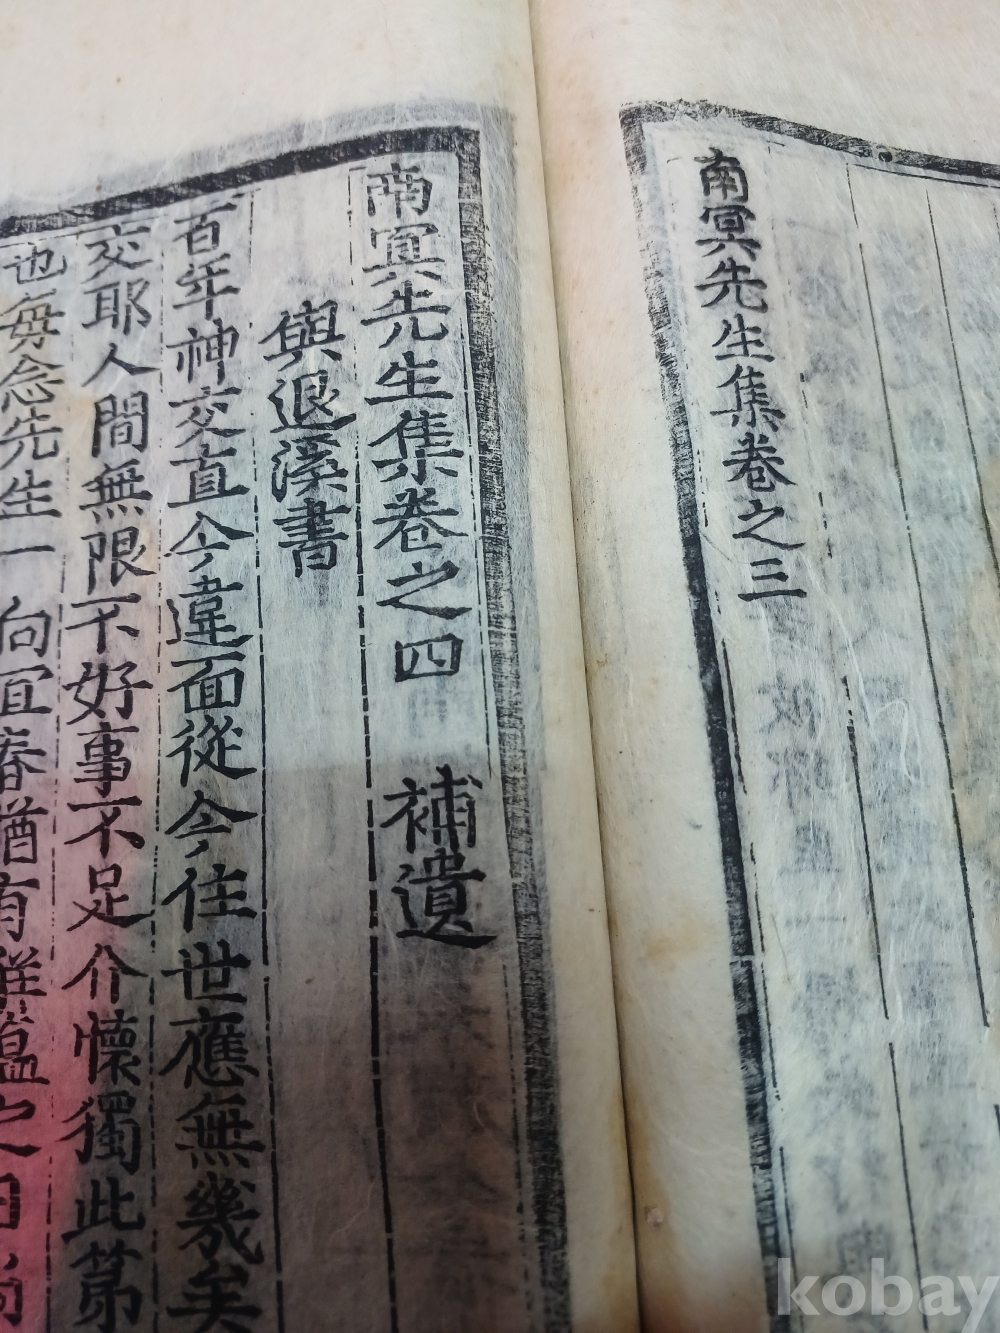 南冥先生集卷之三
南冥先生集卷之四 補遺
與退溪書
百年神交直今違面從今住世應無幾矣
交耶人間無限不好事不足介懷獨此第
也每念先生一向宜春猶有
kobay